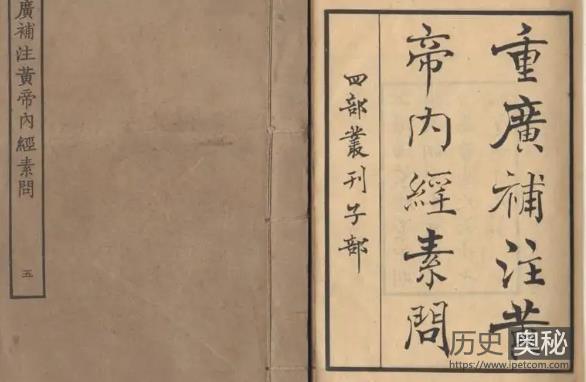 廣補注黃帝內經素問
五
重廣補注黃
帝内經素問
四部叢刊子部
历史奥秘
https://www.ipetcom.com